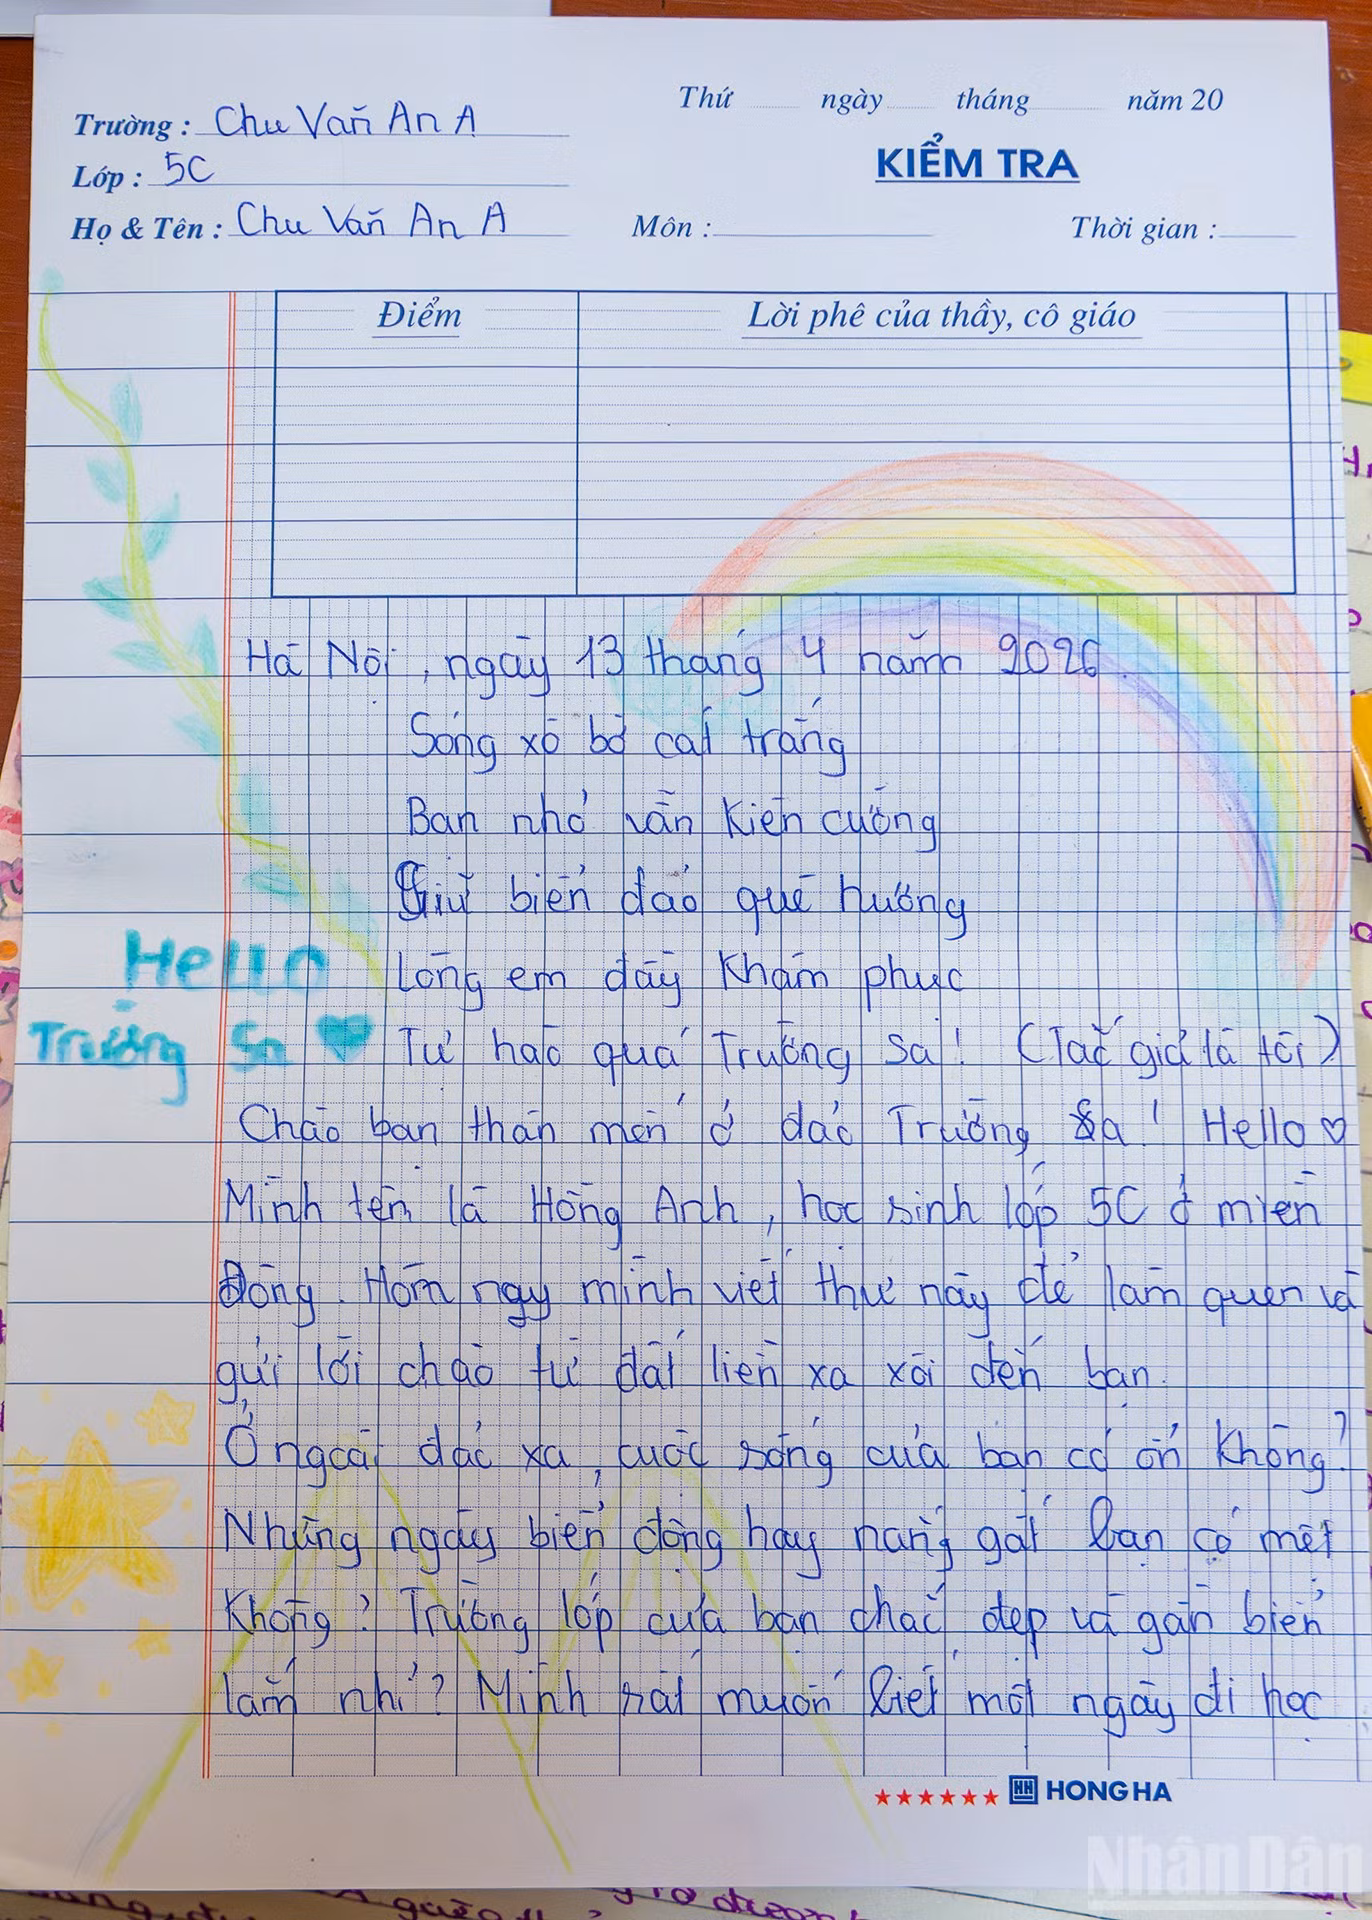 Thứ ngày tháng năm 20
Trường : Chu Văn An A
KIỂM TRA
Lớp : 5C
Họ & Tên : Chu Văn An A Môn : Thời gian :
Điểm Lời phê của thầy, cô giáo
Hà Nội, ngày 13 tháng 4 năm 2026.
Sóng xô bờ cát trắng
Bạn nhỏ vẫn kiên cường
Giữ biển đảo quê hương
Lòng em đầy khâm phục
Tự hào quá Trường Sa! (Tác giả là tôi)
Hello
Trường Sa
Chào bạn thân mến ở đảo Trường Sa! Hello ♡
Mình tên là Hồng Anh, học sinh lớp 5C ở miền
Đông. Hôm nay mình viết thư này để làm quen và
gửi lời chào từ đất liền xa xôi đến bạn.
Ở ngoài đảo xa, cuộc sống của bạn có ổn không?
Những ngày biển động hay nắng gắt bạn có mệt
không? Trường lớp của bạn chắc đẹp và gần biển
lắm nhỉ? Mình rất muốn biết một ngày đi học
HONG HA
NhânDân